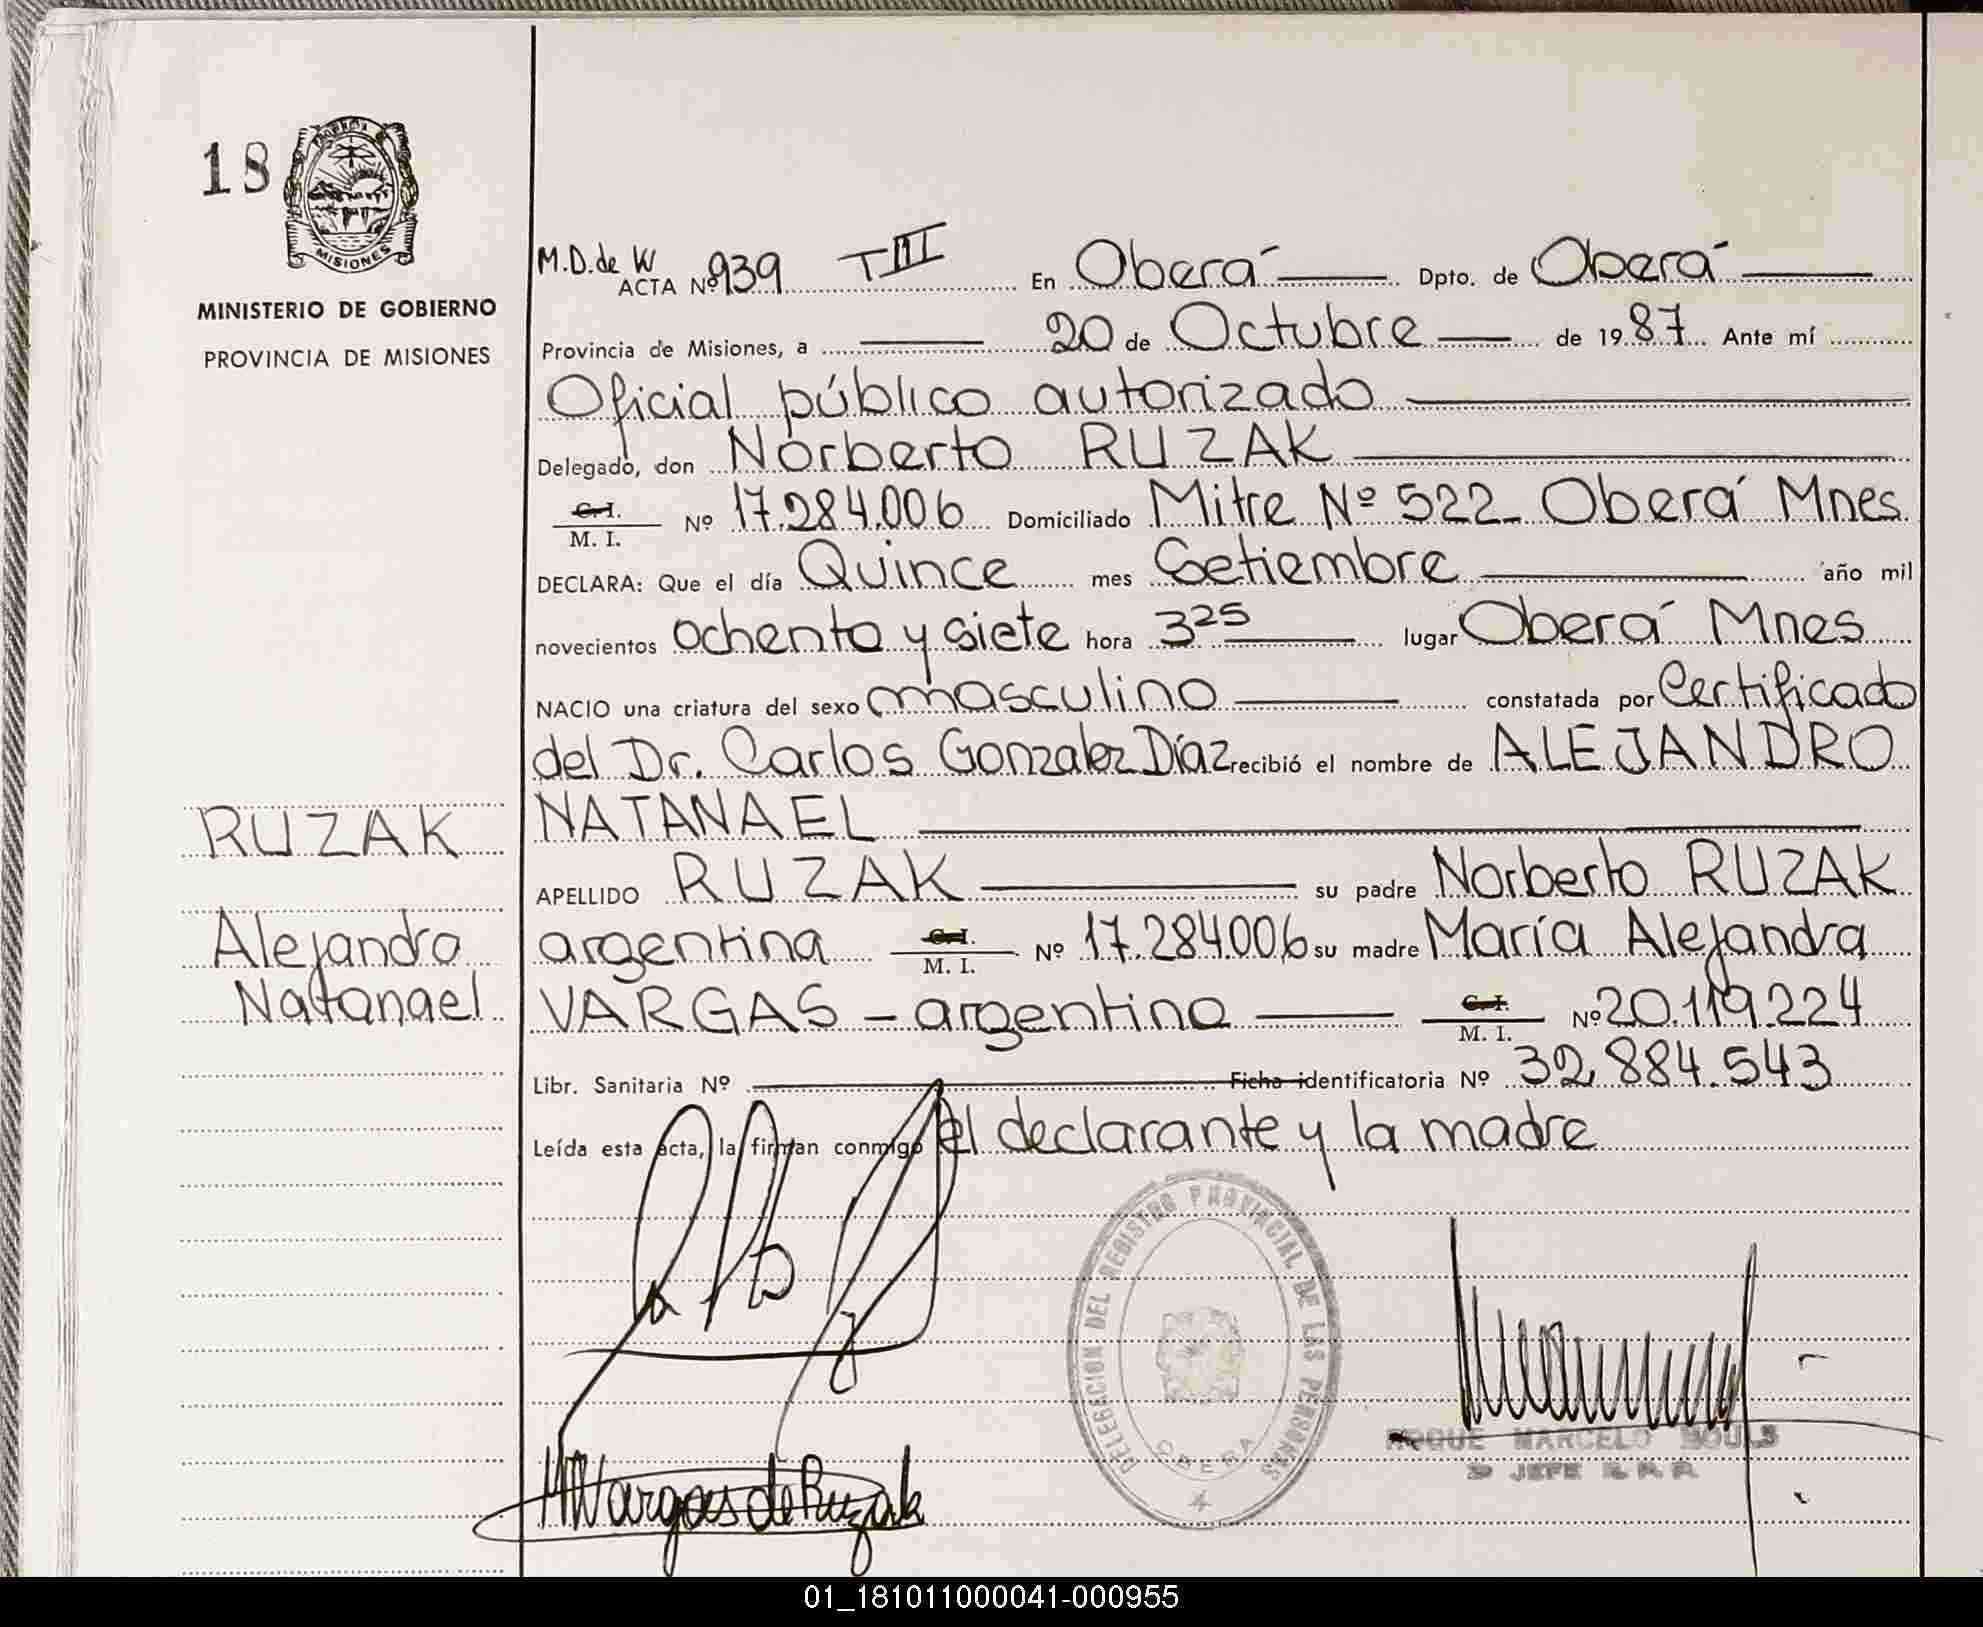 18
MISIONES
MINISTERIO DE GOBIERNO
PROVINCIA DE MISIONES
RUZAK
Alejandro
Natanael
M.D. de W
ACTA Nº 939 TIII En Oberá Dpto. de Oberá
Provincia de Misiones, a 20 de Octubre de 1987 Ante mí
Oficial público autorizado
Delegado, don Norberto RUZAK
C.I.
M. I. Nº 17.284.006 Domiciliado Mitre Nº 522 Oberá Mnes
DECLARA: Que el día Quince mes Setiembre año mil
novecientos ochenta y siete hora 3 25 lugar Oberá Mnes
NACIO una criatura del sexo masculino constatada por Certificado
del Dr. Carlos Gonzalez Díaz recibió el nombre de ALEJANDRO
NATANAEL
APELLIDO RUZAK su padre Norberto RUZAK
argentina C.I. M. I. Nº 17.284.006 su madre María Alejandra
VARGAS - argentina C.I. M. I. Nº 20.119.224
Libr. Sanitaria Nº Ficha identificatoria Nº 32.884.543
Leída esta acta, la firman conmigo el declarante y la madre
DELEGACION DEL REGISTRO PROVINCIAL DE LAS PERSONAS
OBERA
4
MVargas de Ruzak
ROQUE MARCELO
JEFE
01_181011000041-000955